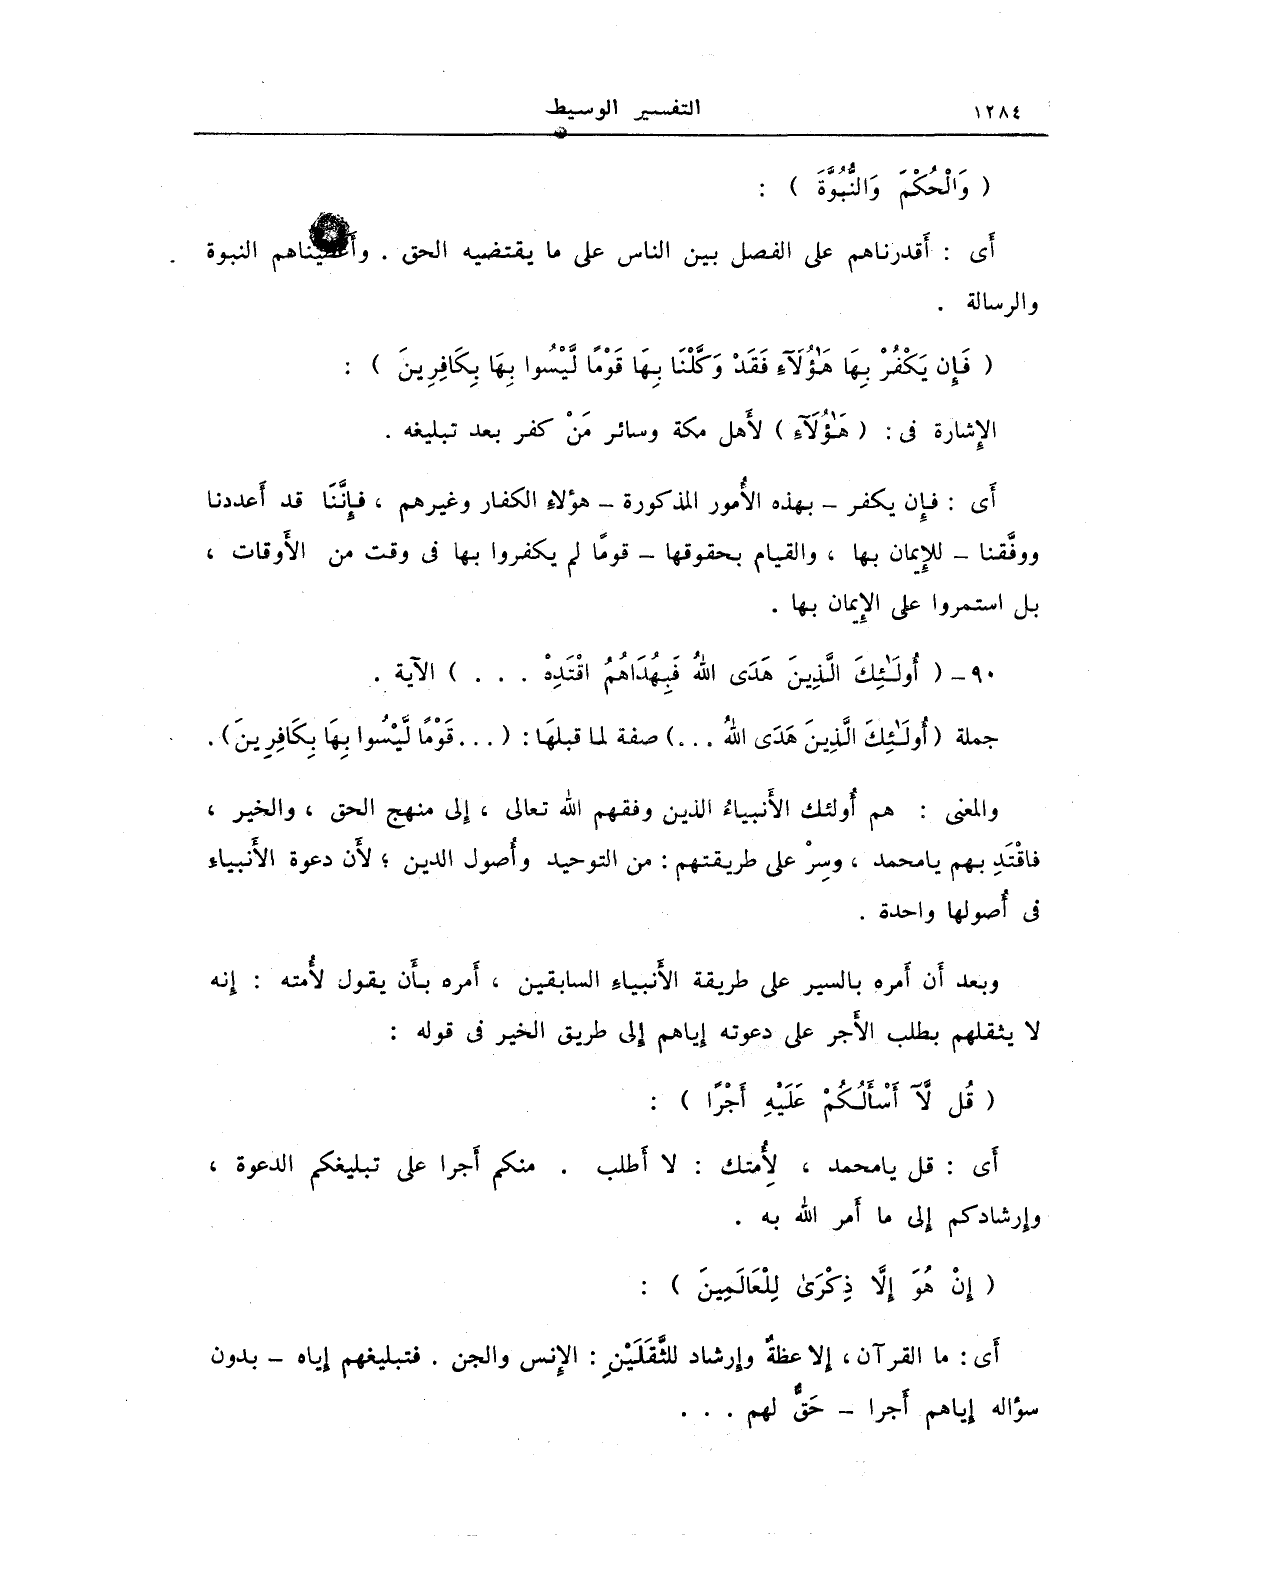 ١٢٨٤ التفسير الوسيط
( وَالْحُكْمَ وَالنُّبُوَّةَ ) :
أَى : أَقدرناهم على الفصل بين الناس على ما يقتضيه الحق . وأَعطيناهم النبوة
والرسالة .
( فَإِن يَكْفُرْ بِهَا هَٰؤُلَآءِ فَقَدْ وَكَّلْنَا بِهَا قَوْمًا لَّيْسُوا بِهَا بِكَافِرِينَ ) :
الإِشارة فى : ( هَٰؤُلَآءِ ) لأَهل مكة وسائر مَنْ كفر بعد تبليغه .
أَى : فإِن يكفر – بهذه الأُمور المذكورة – هؤلاءِ الكفار وغيرهم ، فإِنَّنَا قد أَعددنا
ووفَّقنا – للإِيمان بها ، والقيام بحقوقها – قومًا لم يكفروا بها فى وقت من الأَوقات ،
بل استمروا على الإِيمان بها .
٩٠– ( أُولَٰئِكَ الَّذِينَ هَدَى اللهُ فَبِهُدَاهُمُ اقْتَدِهْ . . . ) الآية .
جملة (أُولَٰئِكَ الَّذِينَ هَدَى اللهُ ...) صفة لما قبلهَا : (...قَوْمًا لَّيْسُوا بِهَا بِكَافِرِينَ).
والمعنى : هم أُولئك الأَنبياءُ الذين وفقهم الله تعالى ، إِلى منهج الحق ، والخير ،
فاقْتَدِ بهم يامحمد ، وسِرْ على طريقتهم : من التوحيد وأُصول الدين ؛ لأَن دعوة الأَنبياءِ
فى أُصولها واحدة .
وبعد أَن أَمره بالسير على طريقة الأَنبياءِ السابقين ، أَمره بأَن يقول لأُمته : إِنه
لا يثقلهم بطلب الأَجر على دعوته إِياهم إِلى طريق الخير فى قوله :
( قُل لَّآ أَسْأَلُكُمْ عَلَيْهِ أَجْرًا ) :
أَى : قل يامحمد ، لِأُمتك : لا أَطلب . منكم أَجرا على تبليغكم الدعوة ،
وإِرشادكم إِلى ما أَمر الله به .
( إِنْ هُوَ إِلَّا ذِكْرَىٰ لِلْعَالَمِينَ ) :
أَى : ما القرآن ، إِلا عظةٌ وإِرشاد للثَّقَلَيْنِ : الإِنس والجن . فتبليغهم إِياه – بدون
سؤاله إِياهم أَجرا – حَقٌّ لهم . . .